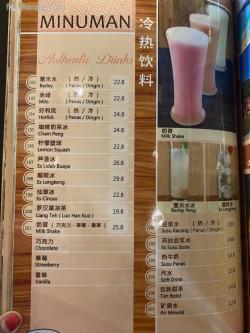 MINUMAN
冷热饮料
Authentic Drinks
薏米水 （热 / 冷）
Barley ( Panas / Dingin )
22.8
美禄 （热 / 冷）
Milo ( Panas / Dingin )
24.8
好利克 （热 / 冷）
Horlick ( Panas / Dingin )
24.8
咖啡奶茶冰
Cham Peng
24.8
柠檬蜜球
Lemon Squash
22.8
芦荟冰
Es Lidah Buaya
26.8
龍眼冰
Es Lengkeng
26.8
仙草冰
Es Cincau
22.8
罗汉菓凉茶
Liang Teh ( Luo Han Kuo )
19.8
奶昔（巧克力·草莓·香草）
Milk Shake
29.8
巧克力
Chocolate
草莓
Strawberry
香草
Vanilla
奶昔
Milk Shake
薏米水冰
Barley Peng
龍眼冰
Es Lengkeng
豆浆水 （热 / 冷）
Susu Kacang ( Panas / Dingin )
Susu Soda
热牛奶
Susu Panas
汽水
Soft Drink
包装甜茶
Teh Botol
矿泉水
Air Mineral